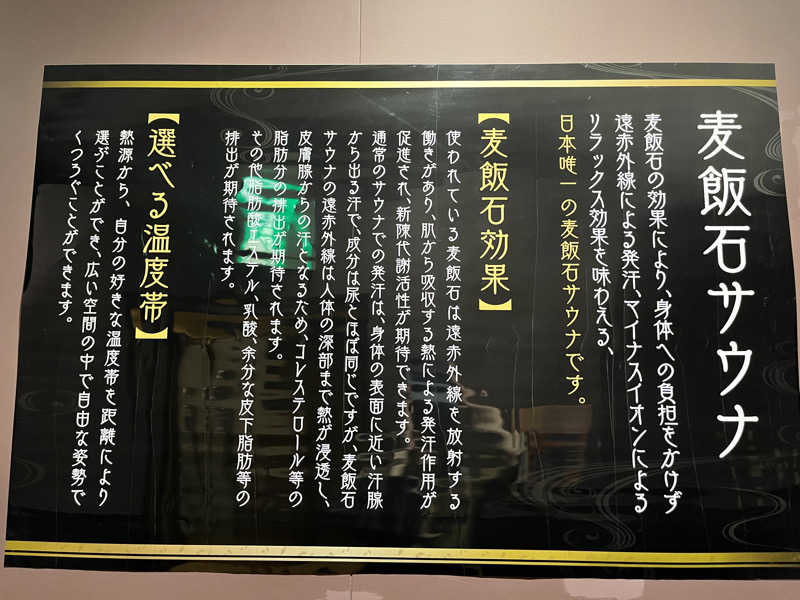 麦飯石サウナ
麦飯石の効果により、身体への負担をかけず
遠赤外線による発汗、マイナスイオンによる
リラックス効果を味わえる、
日本唯一の麦飯石サウナです。
【麦飯石効果】
使われている麦飯石は遠赤外線を放射する
働きがあり、肌から吸収する熱による発汗作用が
促進され、新陳代謝活性が期待できます。
通常のサウナでの発汗は、身体の表面に近い汗腺
から出る汗で、成分は尿とほぼ同じですが、麦飯石
サウナの遠赤外線は人体の深部まで熱が浸透し、
皮膚腺からの汗となるため、コレステロール等の
脂肪分の排出が期待されます。
その他脂肪酸エステル、乳酸、余分な皮下脂肪等の
排出が期待されます。
【選べる温度帯】
熱源から、自分の好きな温度帯を距離により
選ぶことができ、広い空間の中で自由な姿勢で
くつろぐことができます。